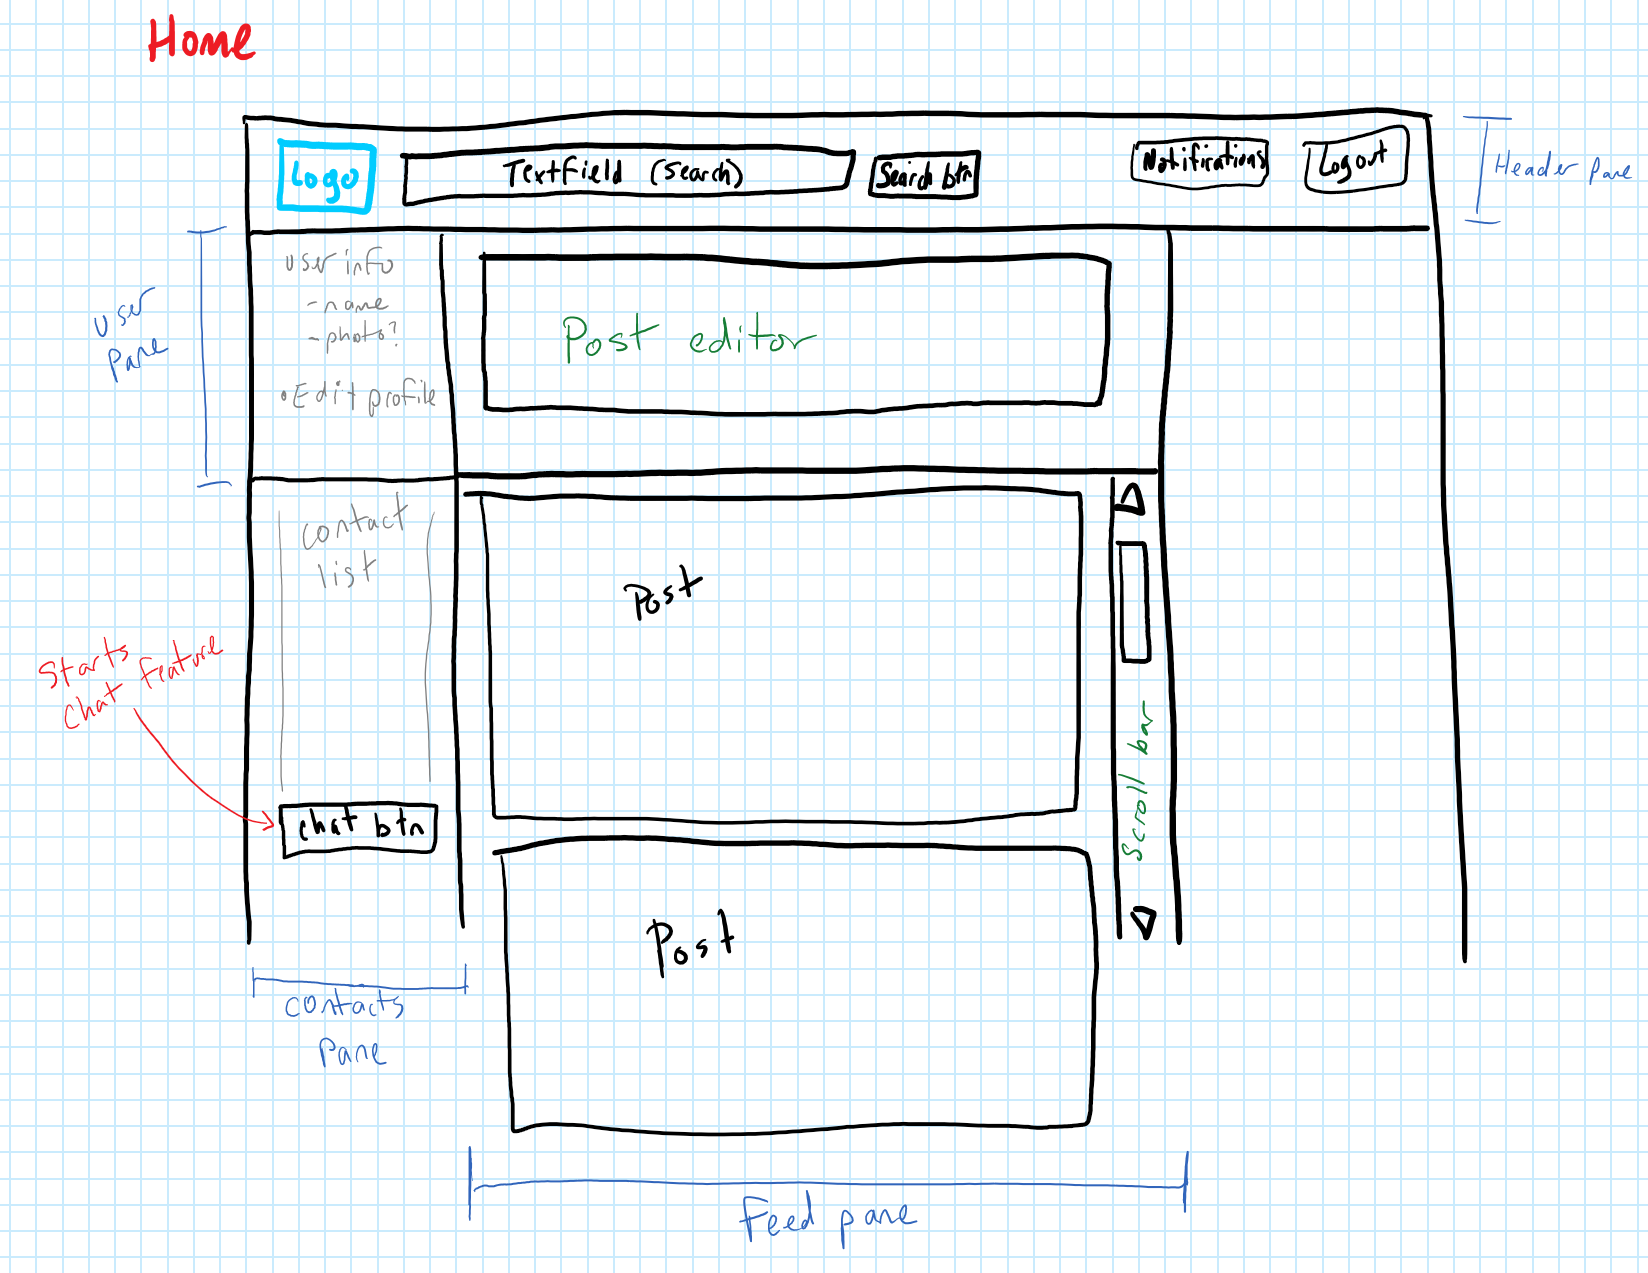 Home
Logo
TextField (Search)
Search btn
Notifirations
Logout
Header Pane
user info
- name
- photo?
• Edit profile
User
Pane
Post editor
contact
list
Post
Starts
chat feature
chat btn
Scroll bar
Post
contacts
Pane
Feed pane